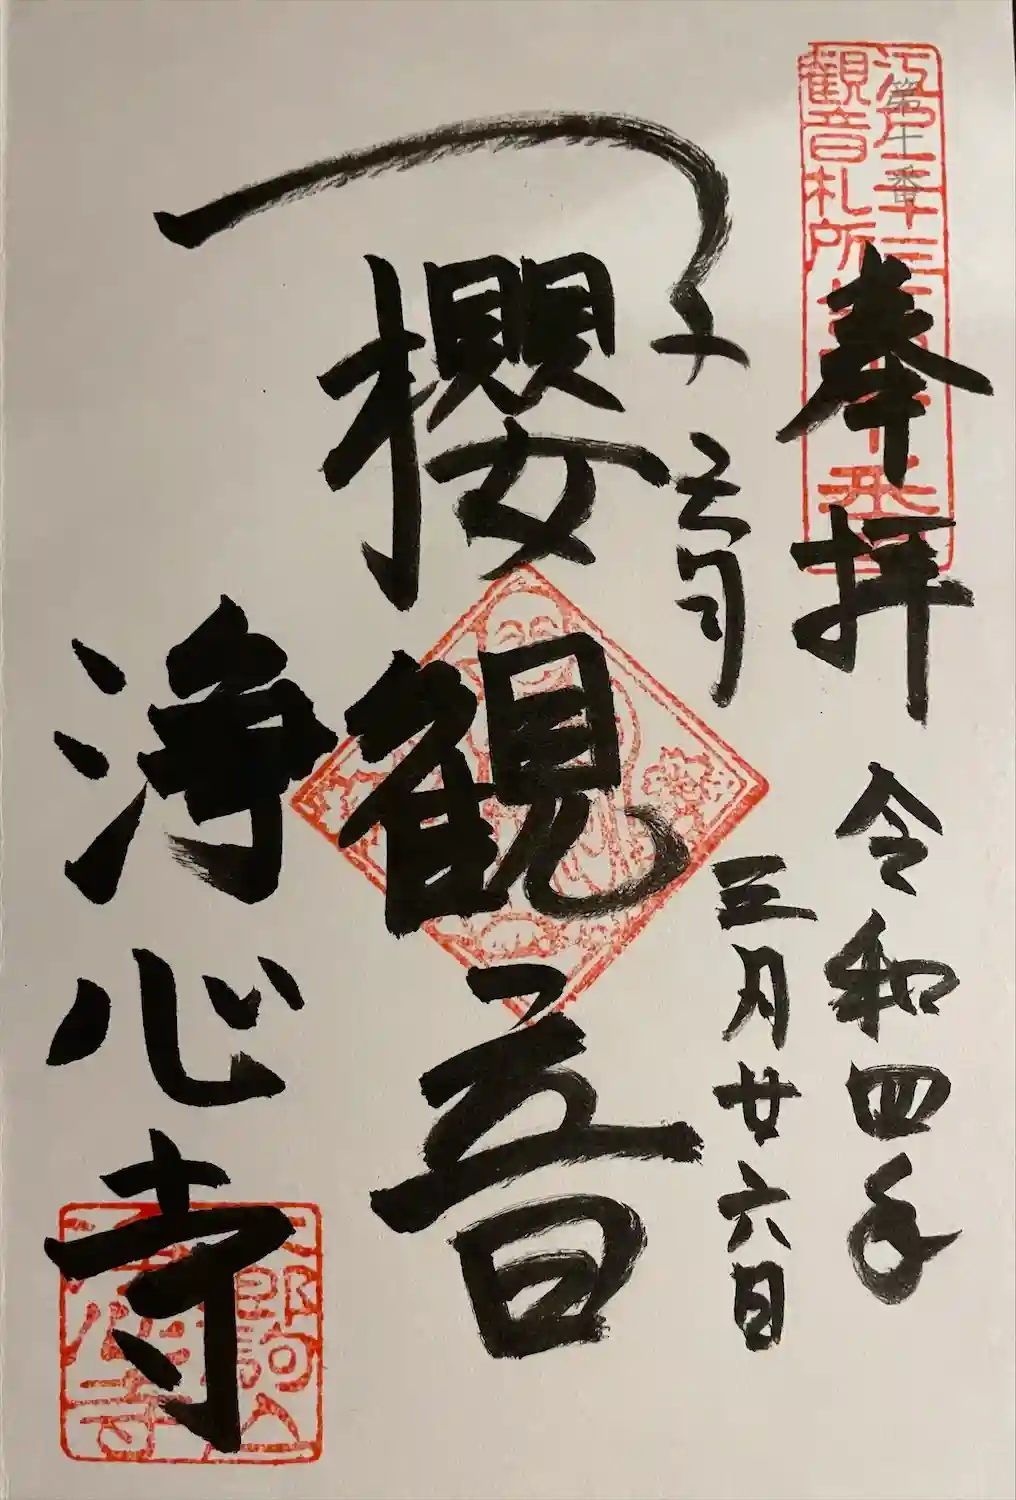 奉拝
江戸三十三
観音札所
第十番
令和四年
三月廿六日
櫻観音
浄心寺